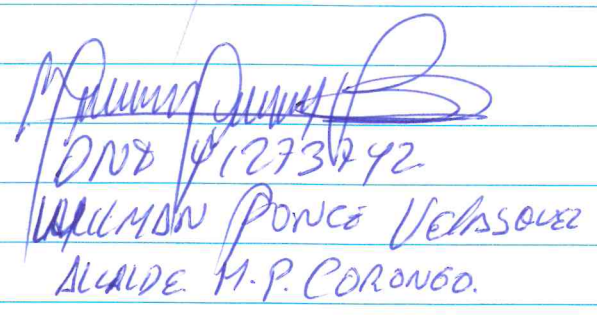 DNI 41273742
PONCE VELASQUEZ
ALCALDE M.P. CORONGO.